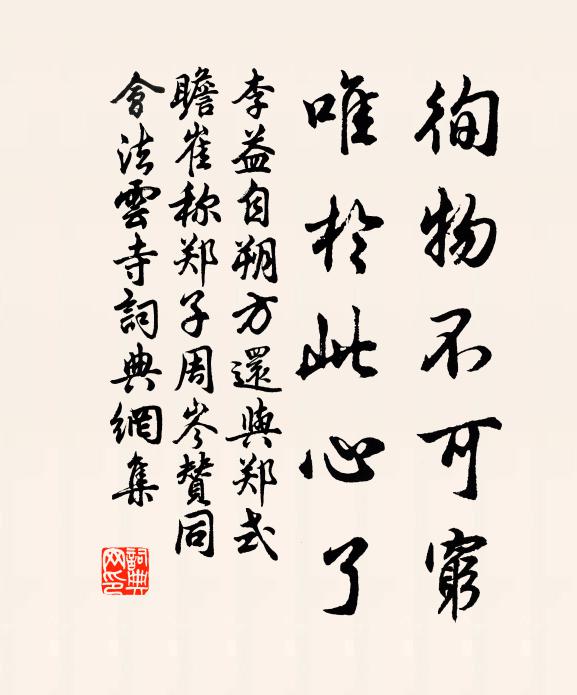 徇物不可窮
唯於此心了
李益自朔方還與郑式
瞻崔称郑子周岑賛同
會法雲寺詞典網集
詞典
网印